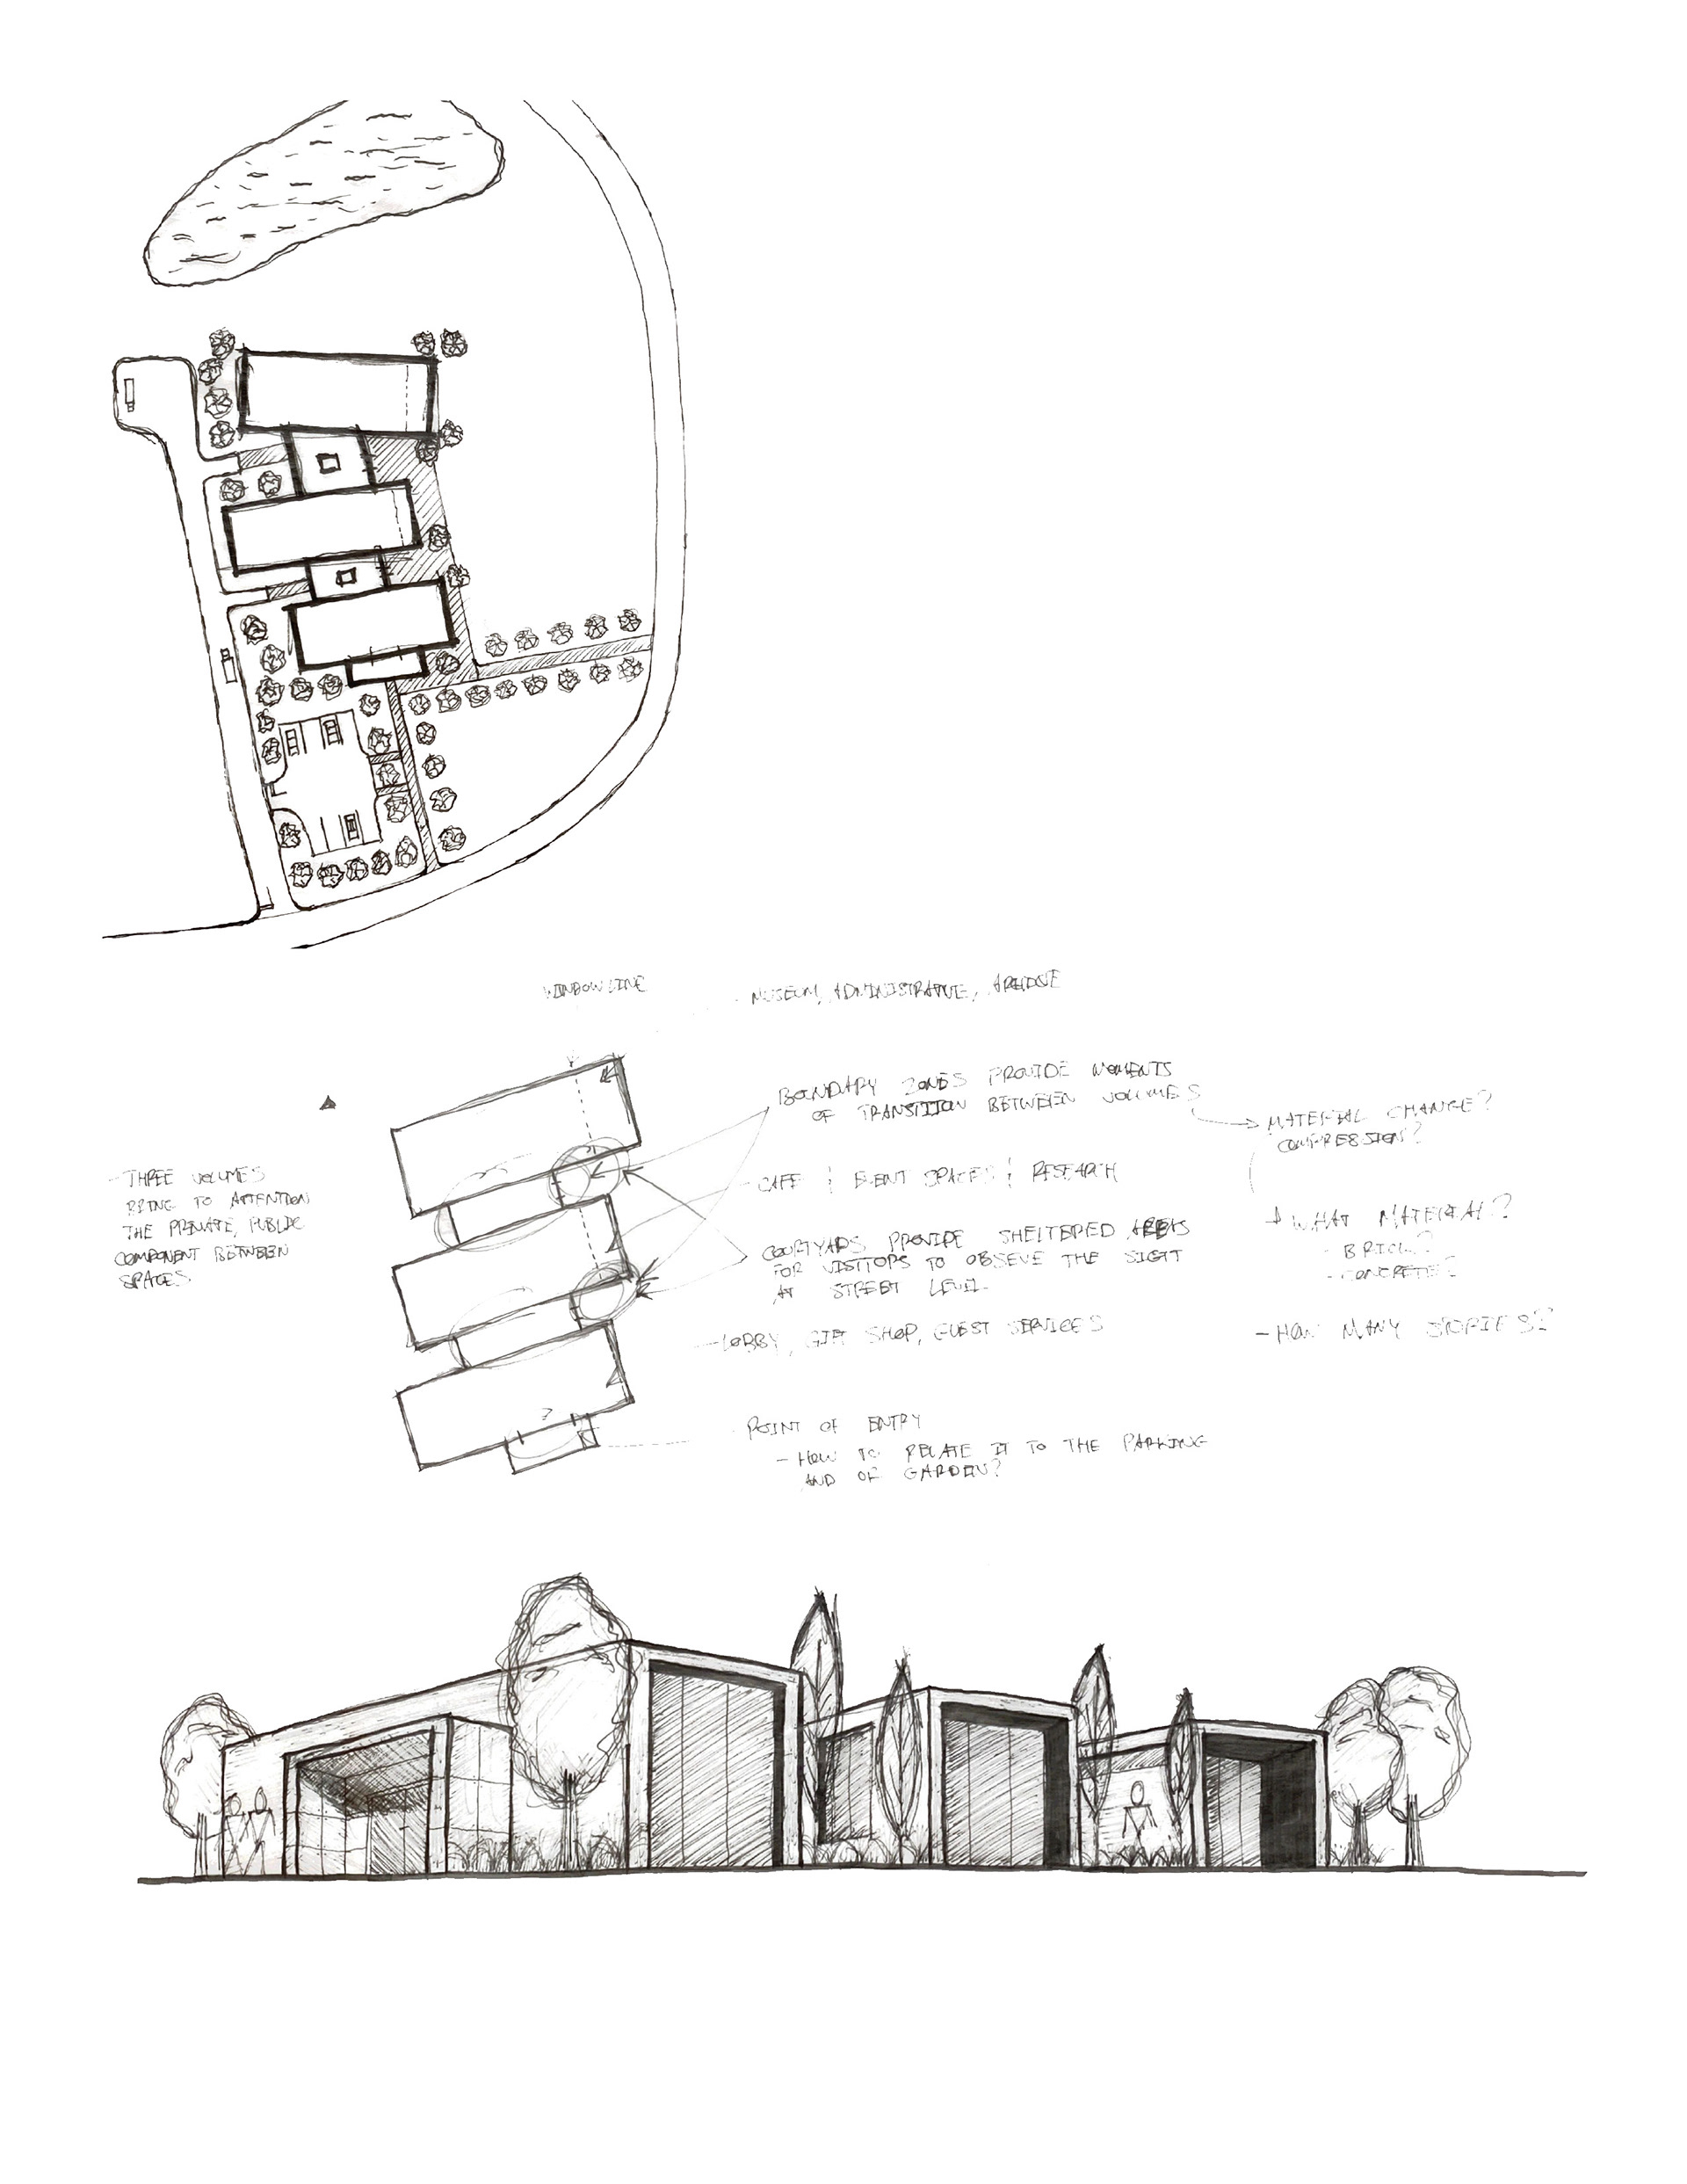 WINDOW LINE
- MUSEUM, ADMINISTRATIVE, ARCHIVE
BOUNDARY ZONES PROVIDE MOMENTS
OF TRANSITION BETWEEN VOLUMES
MATERIAL CHANGE?
COMPRESSION?
- THREE VOLUMES
BRING TO ATTENTION
THE PRIVATE, PUBLIC
COMPONENT BETWEEN
SPACES.
- CAFE | EVENT SPACES | RESEARCH
WHAT MATERIAL?
- BRICK?
- CONCRETE?
COURTYARDS PROVIDE SHELTERED AREAS
FOR VISITORS TO OBSEVE THE SIGTT
AT STREET LEVEL.
- LOBBY, GIFT SHOP, GUEST SERVICES
- HOW MANY STORIES?
POINT OF ENTRY
- HOW TO RELATE IT TO THE PARKING
AND OF GARDEN?